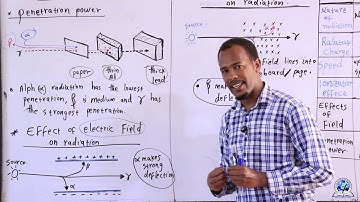 * penetration power
α
β
γ
paper
thin Al
thick lead
Alph (α) radiation has the lowest
penetration, β is medium and γ has
the strongest penetration.
* Effect of electric Field
on radiation
Source
+ + + + + + + +
β
γ
α
α makes
strong
deflection
on radiation
Source
x x x x
γ
field lines into
board/page.
β ma
defle
Nature
of
radiation
Relative
Charge
Speed
Ionization
effect
Effects
of
Field
penetration
power